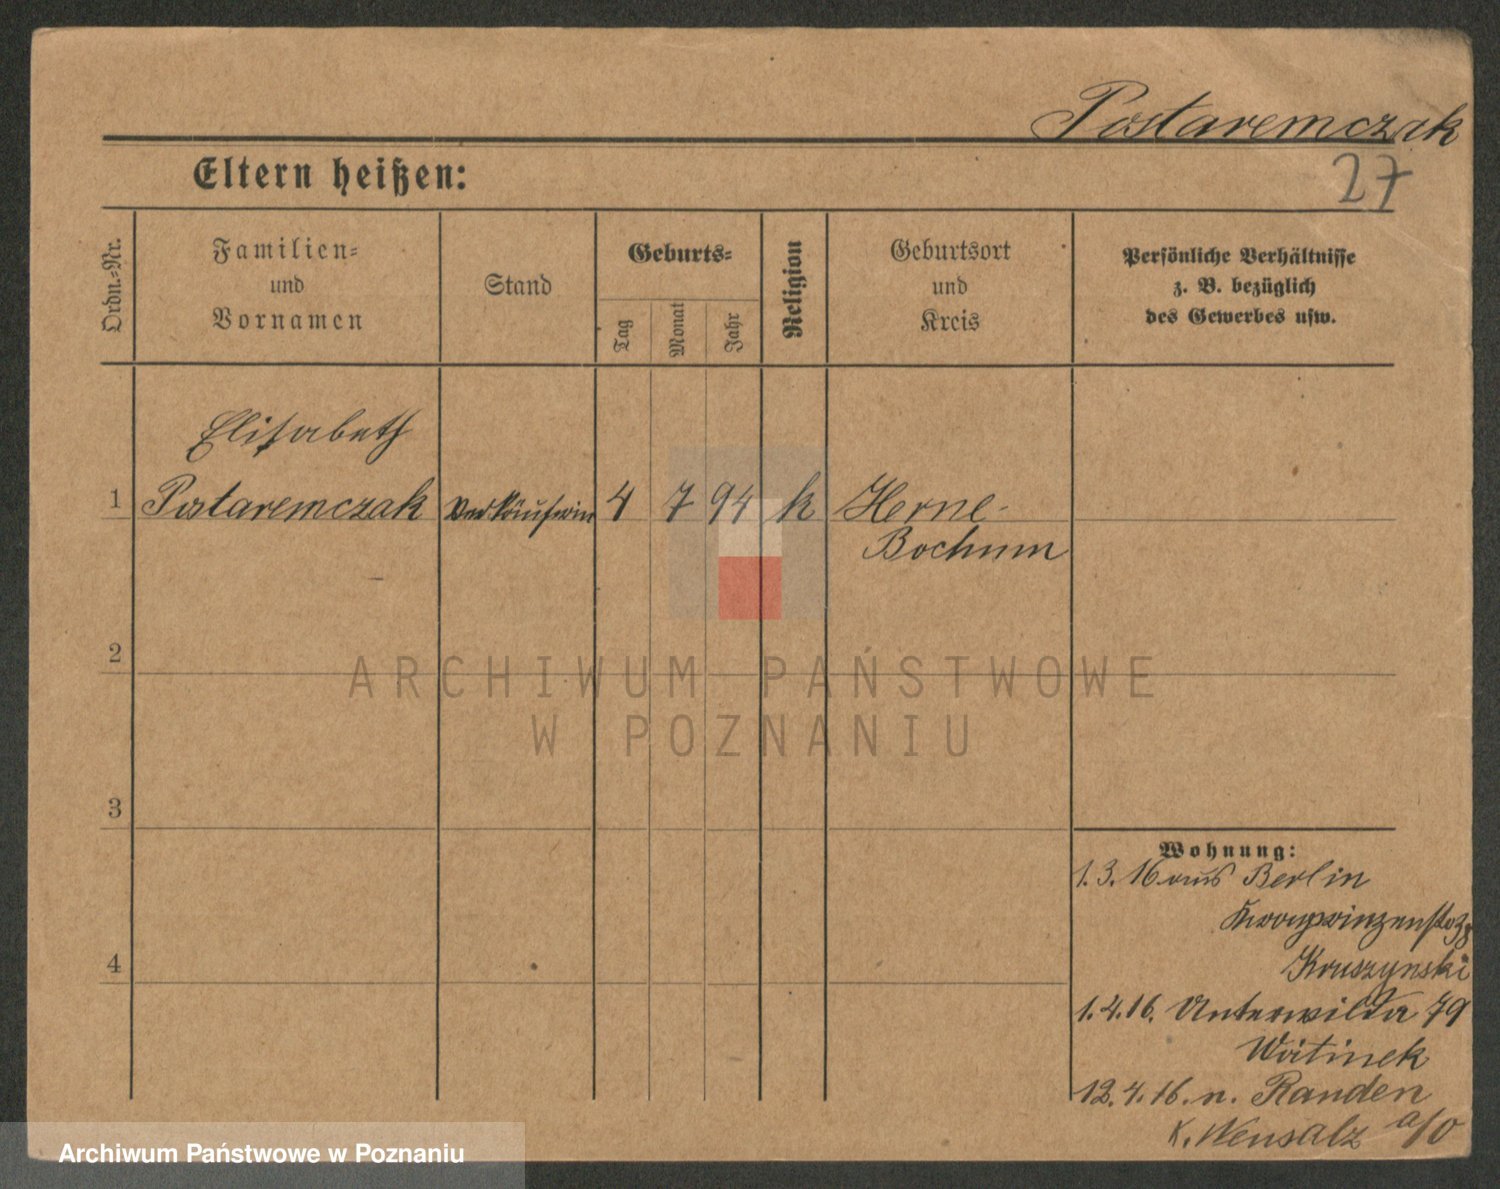 Postaremczak
27
Eltern heißen:
Ordn.-Nr.
Familien-
und
Vornamen
Stand
Geburts-
Tag
Monat
Jahr
Religion
Geburtsort
und
Kreis
Persönliche Verhältnisse
z. B. bezüglich
des Gewerbes usw.
Elisabeth
1 Postaremczak Verkäuferin 4 7 94 k Herne-
Bochum
2
3
4
Wohnung:
1.3.16 aus Berlin
Kronprinzenstr
Kruszynski
1.4.16. Unterwilda 79
Woitinek
12.4.16. n. Randen
K. Wensalz a/O
ARCHIWUM PAŃSTWOWE
W POZNANIU
Archiwum Państwowe w Poznaniu